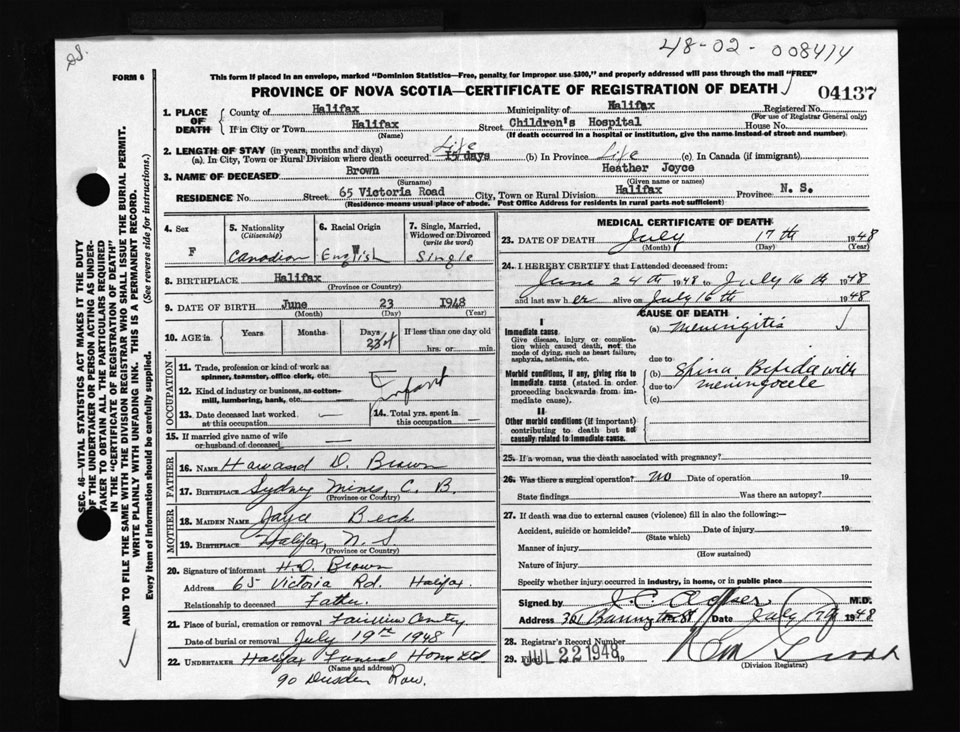 48-02-008414
FORM 6
This form if placed in an envelope, marked "Dominion Statistics—Free, penalty for improper use $300," and properly addressed will pass through the mail "FREE"
PROVINCE OF NOVA SCOTIA—CERTIFICATE OF REGISTRATION OF DEATH
04137
1. PLACE OF DEATH
County of Halifax Municipality of Halifax Registered No.
(For use of Registrar General only)
If in City or Town Halifax Street Children's Hospital House No.
(Name) (If death occurred in a hospital or institution, give the name instead of street and number)
2. LENGTH OF STAY (in years, months and days)
(a). In City, Town or Rural Division where death occurred 15 days Life (b) In Province Life (c). In Canada (if immigrant)
3. NAME OF DECEASED Brown Heather Joyce
(Surname) (Given name or names)
RESIDENCE No. Street 65 Victoria Road City, Town or Rural Division Halifax Province N. S.
(Residence means usual place of abode. Post Office Address for residents in rural parts not sufficient)
4. Sex
F
5. Nationality
(Citizenship)
Canadian
6. Racial Origin
English
7. Single, Married, Widowed or Divorced
(write the word)
Single
8. BIRTHPLACE Halifax
(Province or Country)
9. DATE OF BIRTH June 23 1948
(Month) (Day) (Year)
10. AGE in
Years
Months
Days
If less than one day old
hrs. or min.
OCCUPATION
11. Trade, profession or kind of work as
spinner, teamster, office clerk, etc.
12. Kind of industry or business, as cotton-
mill, lumbering, bank, etc. Infant
13. Date deceased last worked
at this occupation —
14. Total yrs. spent in
this occupation —
15. If married give name of wife
or husband of deceased —
FATHER
16. NAME Howard D. Brown
17. BIRTHPLACE Sydney Mines, C. B.
(Province or Country)
MOTHER
18. MAIDEN NAME Joyce Beck
19. BIRTHPLACE Halifax, N. S
(Province or Country)
20. Signature of informant H. D. Brown
Address 65 Victoria Rd. Halifax.
Relationship to deceased Father.
21. Place of burial, cremation or removal Fairview
Date of burial or removal July 19 1948
22. UNDERTAKER Halifax Funeral Home Ltd.
(Name and address)
90 Dresden Row.
MEDICAL CERTIFICATE OF DEATH
23. DATE OF DEATH July 17th 1948
(Month) (Day) (Year)
24. I HEREBY CERTIFY that I attended deceased from:
June 24th 1948 to July 16th 1948
and last saw her alive on July 16th 1948
CAUSE OF DEATH
I
Immediate cause.
Give disease, injury or complica-
tion which caused death, not the
mode of dying, such as heart failure,
asphyxia, asthenia, etc.
(a) Meningitis
due to
Morbid conditions, if any, giving rise to
immediate cause (stated in order
proceeding backwards from im-
mediate cause).
(b) Spina Bifida with
due to meningocele
(c)
II
Other morbid conditions (if important)
contributing to death but not
causally related to immediate cause.
25. If a woman, was the death associated with pregnancy?
26. Was there a surgical operation? No Date of operation 19
State findings Was there an autopsy?
27. If death was due to external causes (violence) fill in also the following:—
Accident, suicide or homicide? Date of injury 19
(State which)
Manner of injury
(How sustained)
Nature of injury
Specify whether injury occurred in industry, in home, or in public place
Signed by M.D.
Address Barrington St Date July 17th 1948
28. Registrar's Record Number
29. Filed JUL 22 1948 19
(Division Registrar)
SEC. 46—VITAL STATISTICS ACT MAKES IT THE DUTY
OF THE UNDERTAKER OR PERSON ACTING AS UNDER-
TAKER TO OBTAIN ALL THE PARTICULARS REQUIRED
IN THE "CERTIFICATE OF REGISTRATION OF DEATH"
AND TO FILE THE SAME WITH THE DIVISION REGISTRAR WHO SHALL ISSUE THE BURIAL PERMIT.
WRITE PLAINLY WITH UNFADING INK. THIS IS A PERMANENT RECORD.
Every item of information should be carefully supplied. (See reverse side for instructions.)